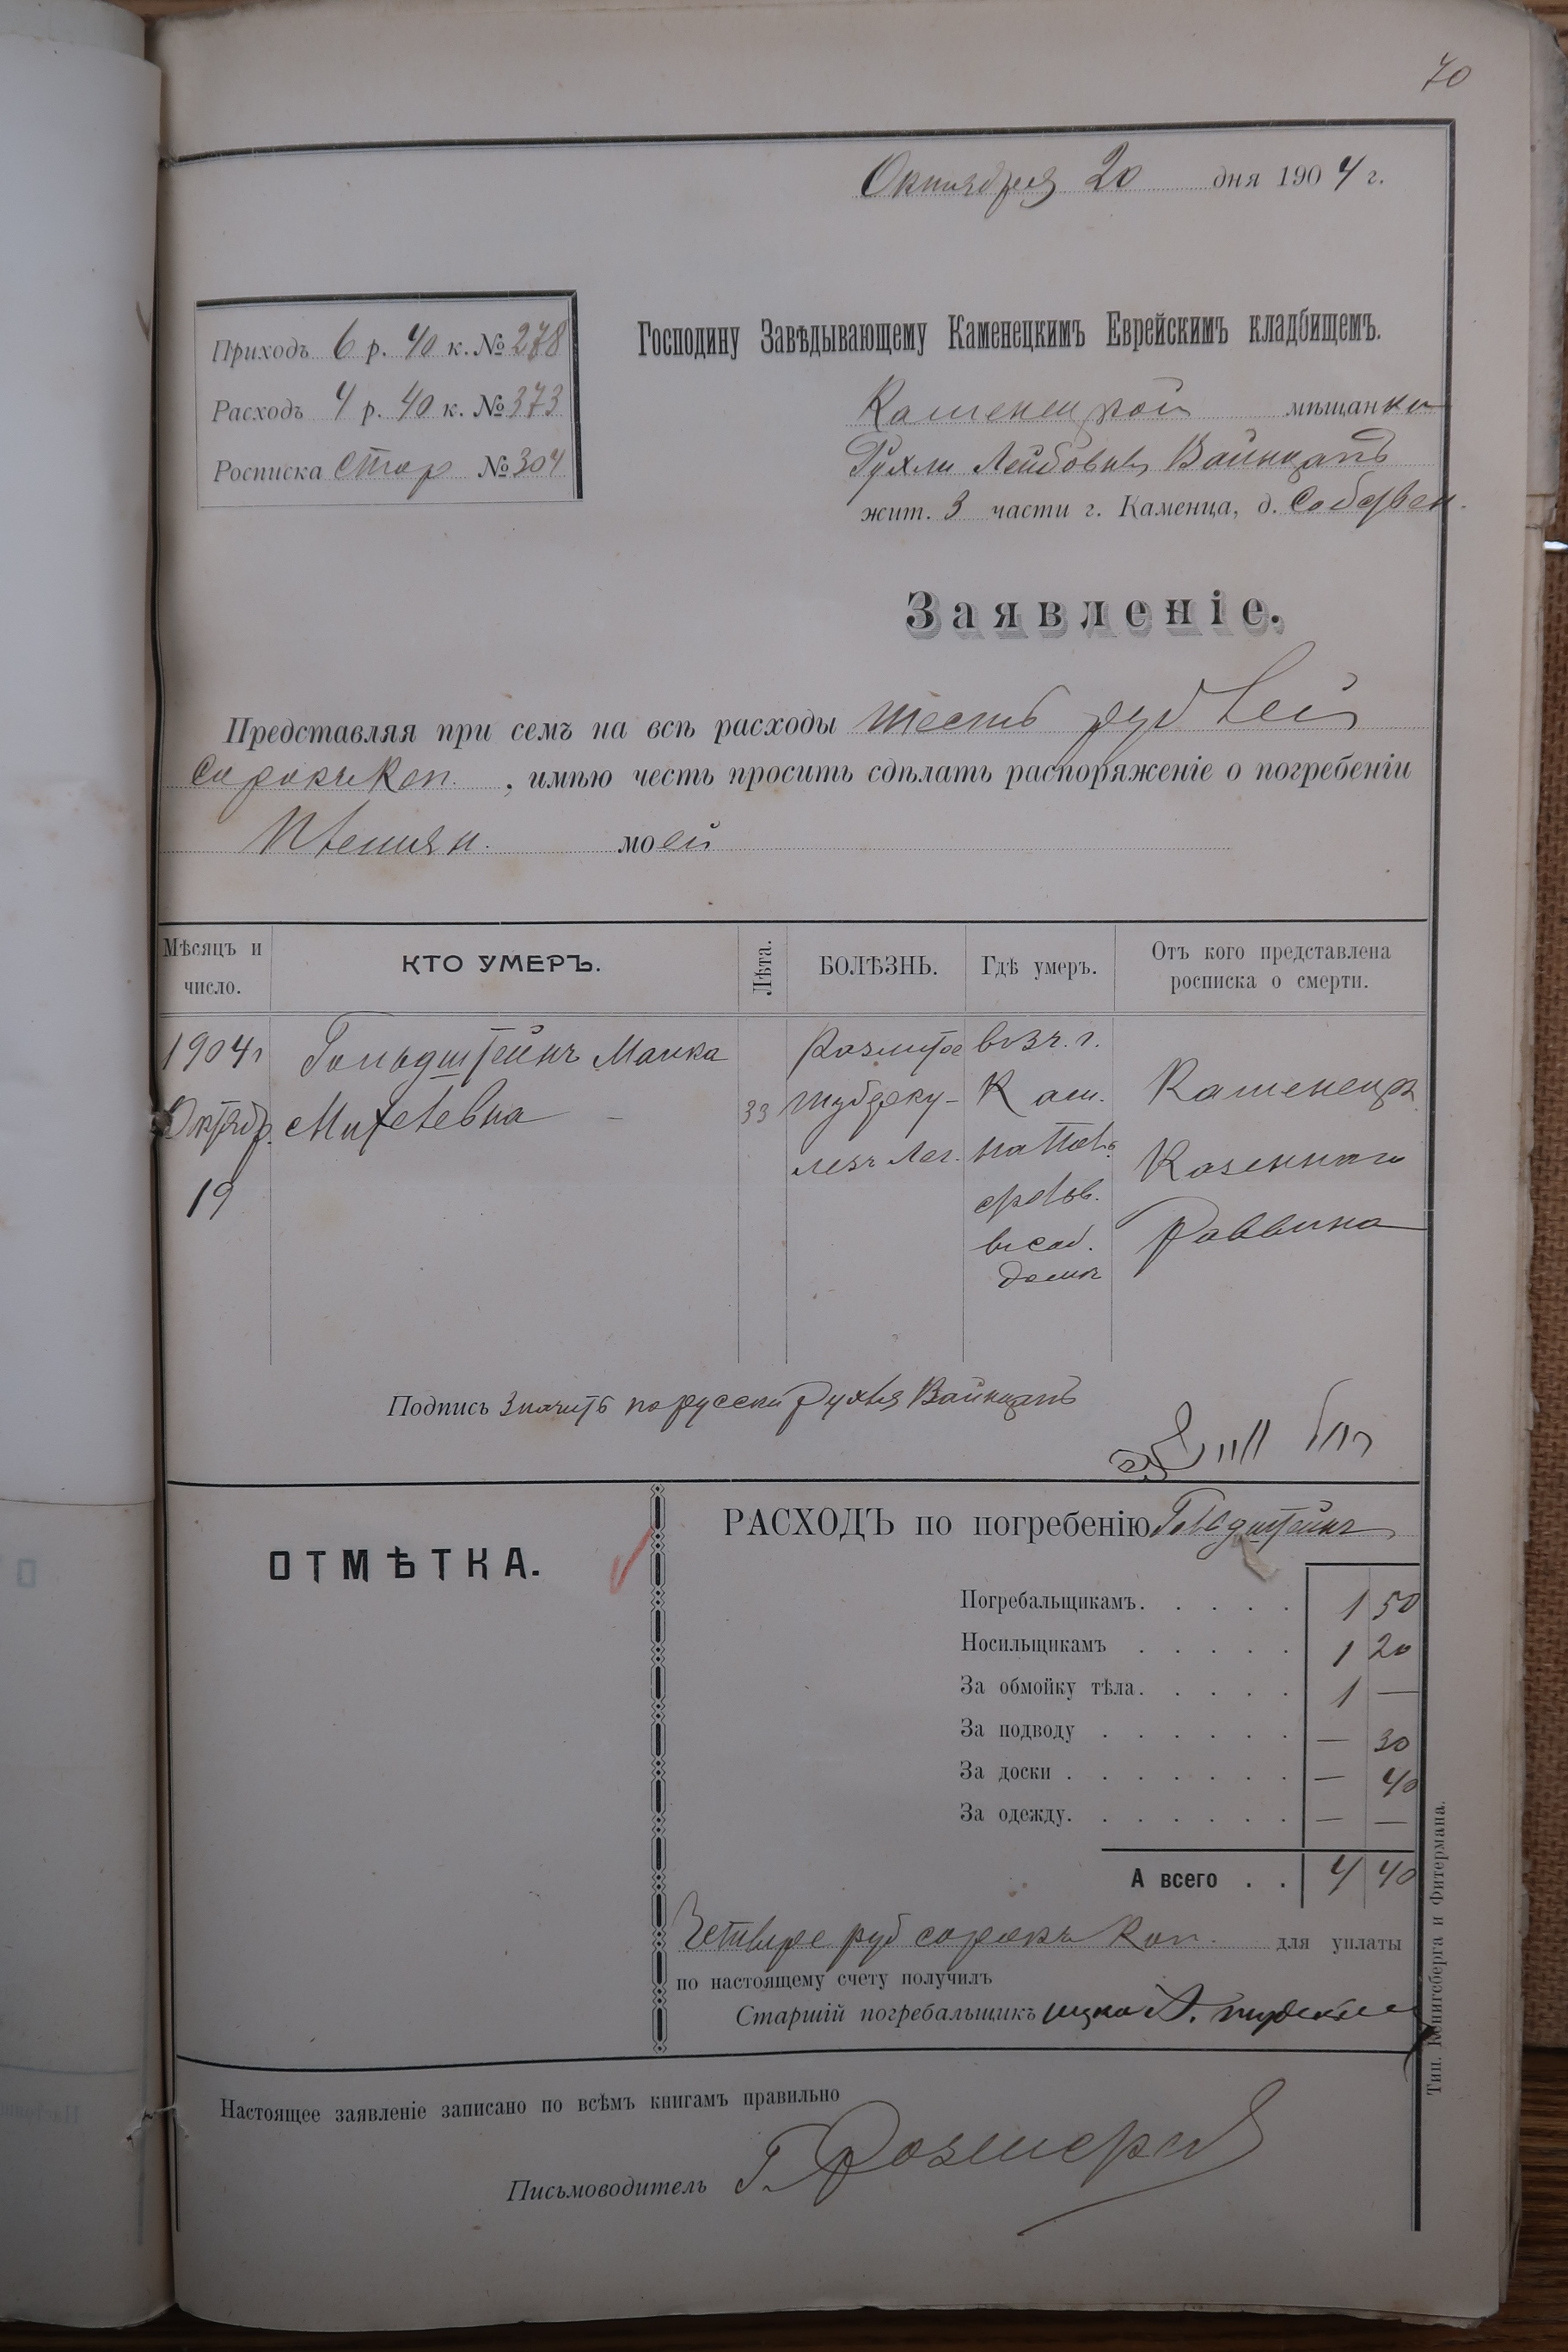 70
Октября 20 дня 1904 г.
Приходъ 6 р. 40 к. № 278
Расходъ 4 р. 40 к. № 373
Росписка стар № 304
Господину Завѣдывающему Каменецкимъ Еврейскимъ кладбищемъ.
Каменецкой мѣщанки
Рухли Лейбовны Вайнцапъ
жит. 3 части г. Каменца, д. Собствен.
Заявленіе.
Представляя при семъ на всѣ расходы шесть рублей
сорокъ коп. , имѣю честь просить сдѣлать распоряженіе о погребеніи
моей
Мѣсяцъ и число.
КТО УМЕРЪ.
Лѣта.
БОЛѢЗНЬ.
Гдѣ умеръ.
Отъ кого представлена росписка о смерти.
1904 г Гольдштейнъ Малка въ 3 ч. г.
Октябр. 33 туберку- Кам. Каменецк
лезъ лег. Казеннаго
19
Раввина
въ соб.
домѣ
Подпись значитъ по русски Рухля Вайнцапъ
רחל
ОТМѢТКА.
РАСХОДЪ по погребенію Гольдштейнъ
Погребальщикамъ. 1 50
Носильщикамъ 1 20
За обмойку тѣла. 1 —
За подводу — 30
За доски — 40
За одежду. — —
А всего 4 40
Четыре руб сорокъ коп. для уплаты
по настоящему счету получилъ
Старшій погребальщикъ Ицко
Тип. Кенигсберга и Фитермана.
Настоящее заявленіе записано по всѣмъ книгамъ правильно
Письмоводитель Г.